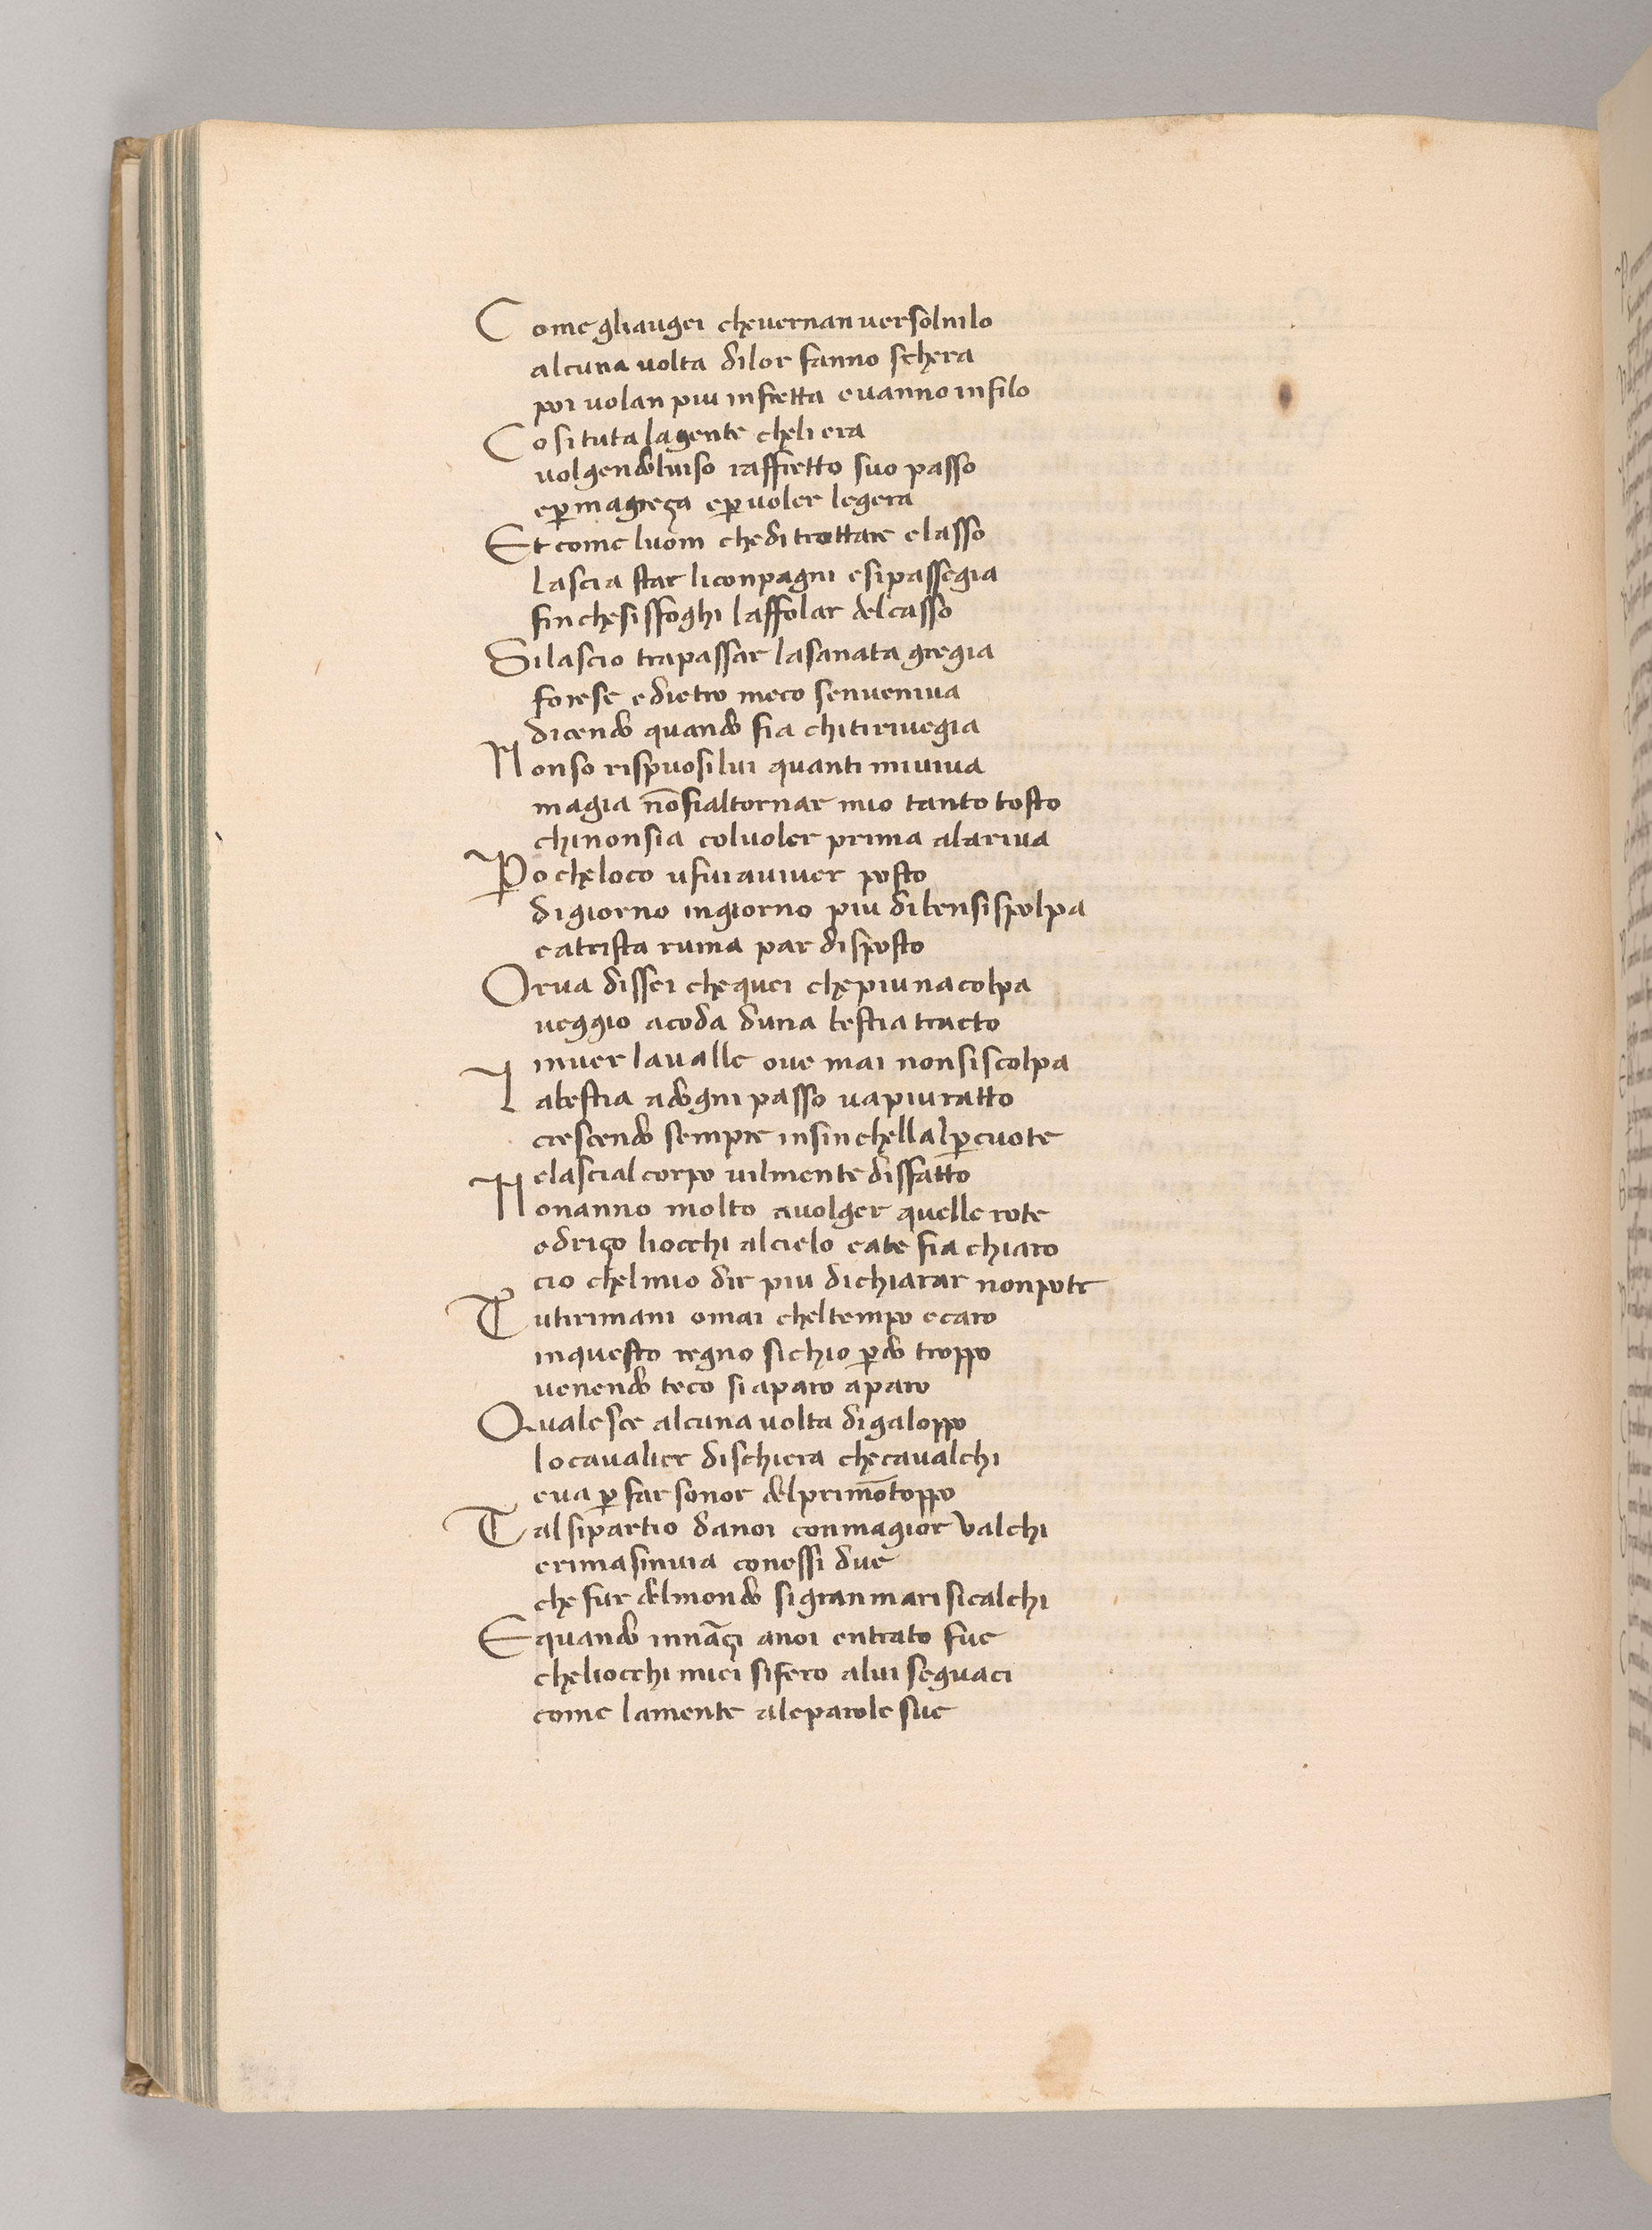 Come gliaugei cheuernan uersolnilo
alcuna uolta dilor fanno schera
poi uolan piu infretta euanno infilo
Cosi tuta lagente cheli era
uolgendolviso raffretto suo passo
eꝑ magreça eꝑ uoler legera
Et come luom chedi trottare elasso
lascia star liconpagni esipassegia
fin chesi sfoghi laffolar delcasso
Si lascio trapassar lasanata gregia
forese edietro meco senueniua
dicendo quando fia chitiriuegia
Non so rispuosilui quanti miuiua
magia nō fialtornar mio tanto tosto
chi nonsia coluoler prima alariua
Ꝑo cheloco ufui auiuer posto
digiorno ingiorno piu dibensispolpa
eatrista ruina par disposto
Orua dissei chequei chepiunacolpa
ueggio acoda duna bestia tracto
inuer laualle oue mai nonsiscolpa
Labestia adogni passo uapiuratto
crescendo sempre insinchellalꝑcuote
elascialcorpo uilmente disfatto
Nonanno molto auolger quelle rote
edriço liocchi alcielo eate fia chiaro
cio chelmio dir piu dichiarar nonpote
Tutirimani omai cheltempo ecaro
inquesto regno sichio ꝑdo troppo
uenendo teco si aparo aparo
Qualesce alcuna uolta digaloppo
locaualier dischiera checaualchi
eua ꝑ far sonor delprimōtoppo
Tal sipartio danoi conmagior valchi
erimasinuia conessi due
che fur delmondo sigranmarisicalchi
E quando innāçi anoi entrato fue
cheliocchi miei sifero alui seguaci
come lamente aleparole sue